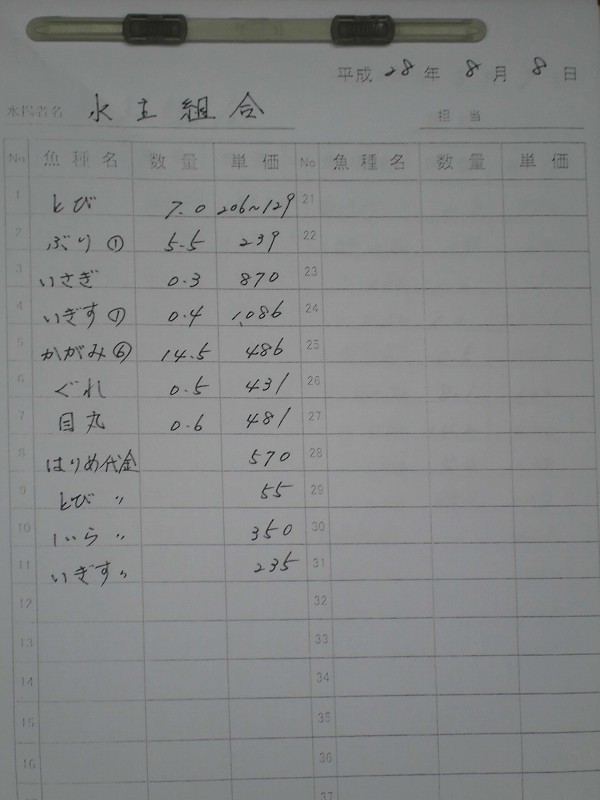 平成 28 年 8 月 8 日
水揚者名 水主組合 担当
No 魚種名 数量 単価 No 魚種名 数量 単価
1 とび 7.0 206~129 21
2 ぶり① 5.5 239 22
3 いさぎ 0.3 870 23
4 いぎす① 0.4 1,086 24
5 かがみ⑥ 14.5 486 25
6 ぐれ 0.5 431 26
7 目丸 0.6 481 27
8 はりめ代金 570 28
9 とび 〃 55 29
10 しいら 〃 350 30
11 いぎす 〃 235 31
12 32
13 33
14 34
15 35
16 36
37